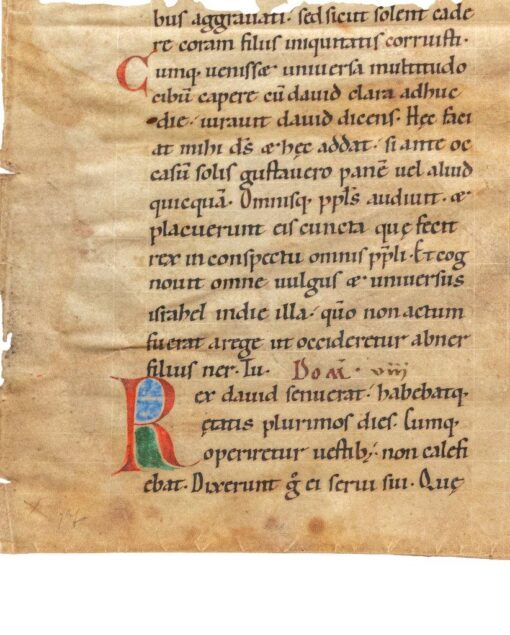 bus aggrauati· sed sicut solent cade
re coram filiis iniquitatis corruisti·
Cumq; uenissæt uniuersa multitudo
cibũ capere cũ dauid clara adhuc
die· iurauit dauid dicens· Hęc faci
at mihi d̄s & hęc addat· si ante oc
casũ solis gustauero panẽ uel aliud
quicquã· Omnisq; pp̄ls audiuit· &
placuerunt eis cuncta quę fecit
rex in conspectu omnis pp̄li· Et cog
nouit omne uulgus & uniuersus
israhel in die illa· qm̄o non actum
fuerat a rege ut occideretur abner
filius ner· Tu· Dom̄· viiij
Rex dauid senuerat· habebatq;
ętatis plurimos dies· Cumq;
operiretur uestib;· non calefi
ebat· Dixerunt g̊ ei serui sui· Quę